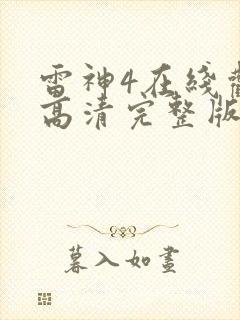 雷神4在线
高清完整版
暮入如画